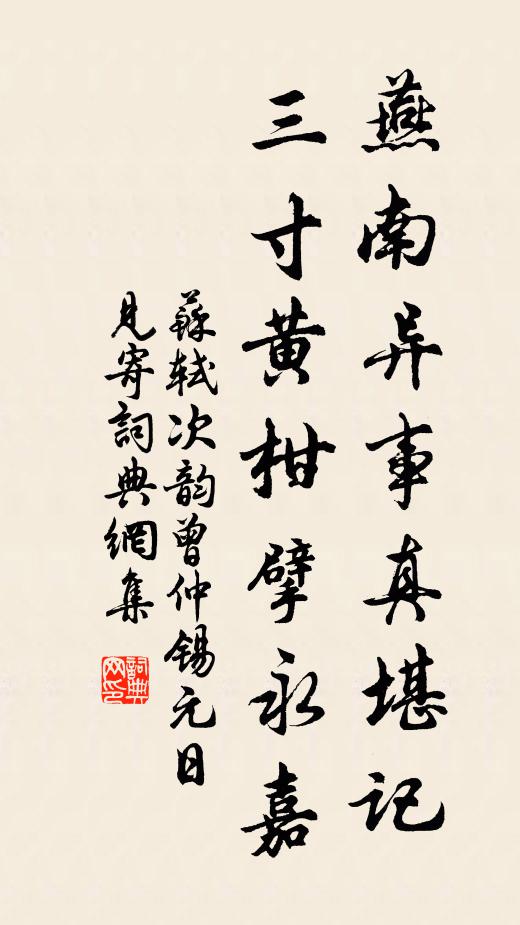 燕南异事真堪记
三寸黄柑擘永嘉
蘇轼次韵曾仲锡元日
見寄詞典網集
詞典网印